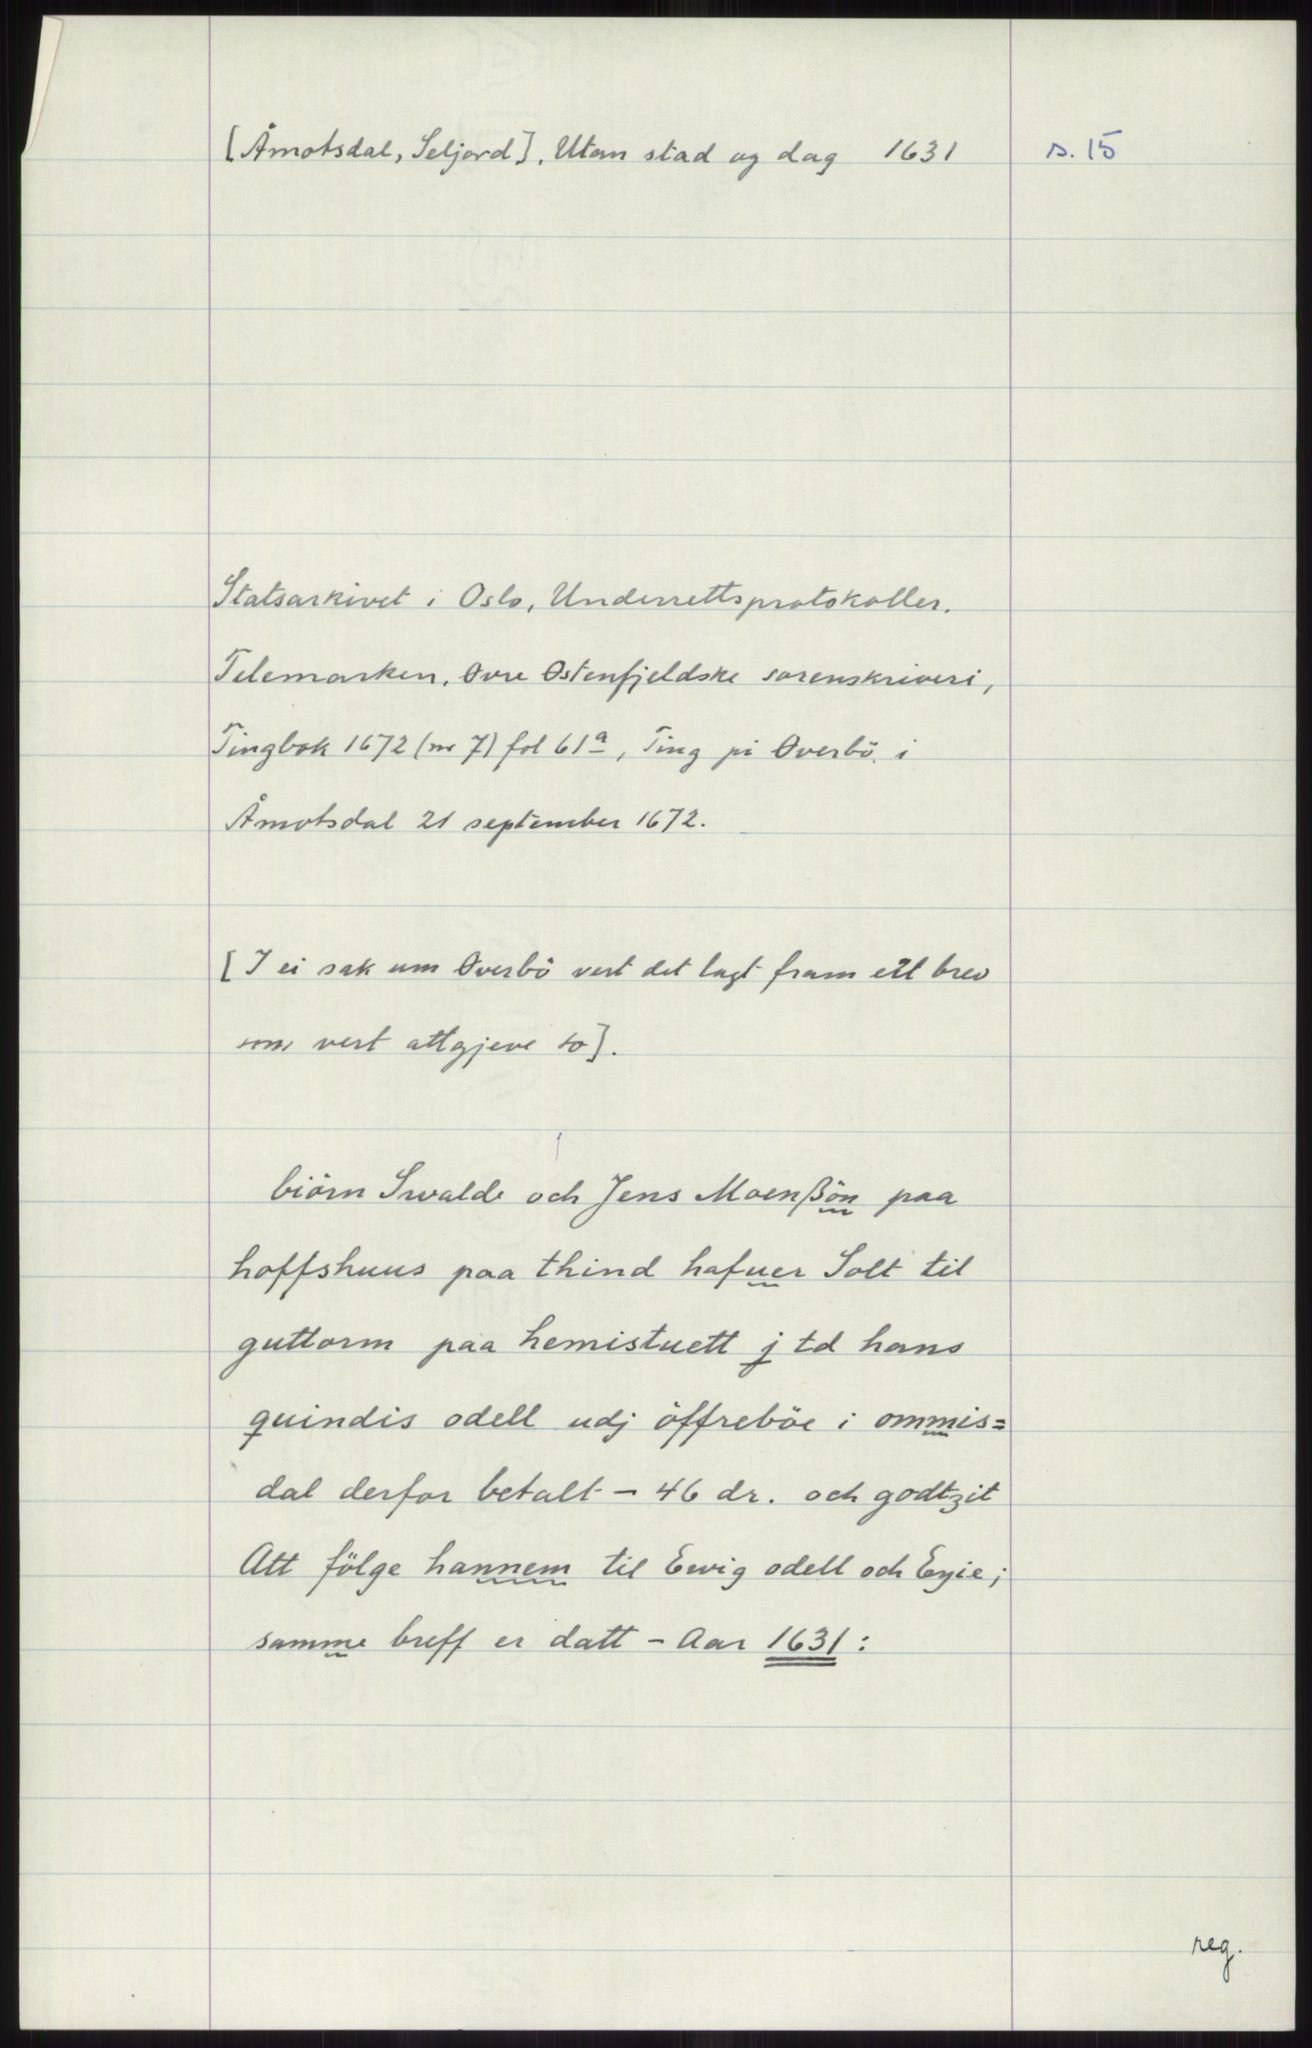 [Åmotsdal, Seljord], Utan stad og dag 1631 s. 15
Statsarkivet i Oslo, Underrettsprotokoller.
Telemarken, Øvre Østenfjeldske sorenskriveri,
Tingbok 1672 (nr 7) fol 61a, Ting på Øverbö i
Åmotsdal 21 september 1672.
[I ei sak um Øverbö vert det lagt fram eit brev
som vert attgjeve so].
biörn Swalde och Jens Moenßön paa
hoffshuus paa thind hafuer Solt til
guttorm paa hemistuett j td hans
quindis odell udj öffreböe i ommis=
dal derfor betalt - 46 dr. och godtzit
Att fölge hannem til Ewig odell och Eyie;
samme breff er datt - Aar 1631:
reg.